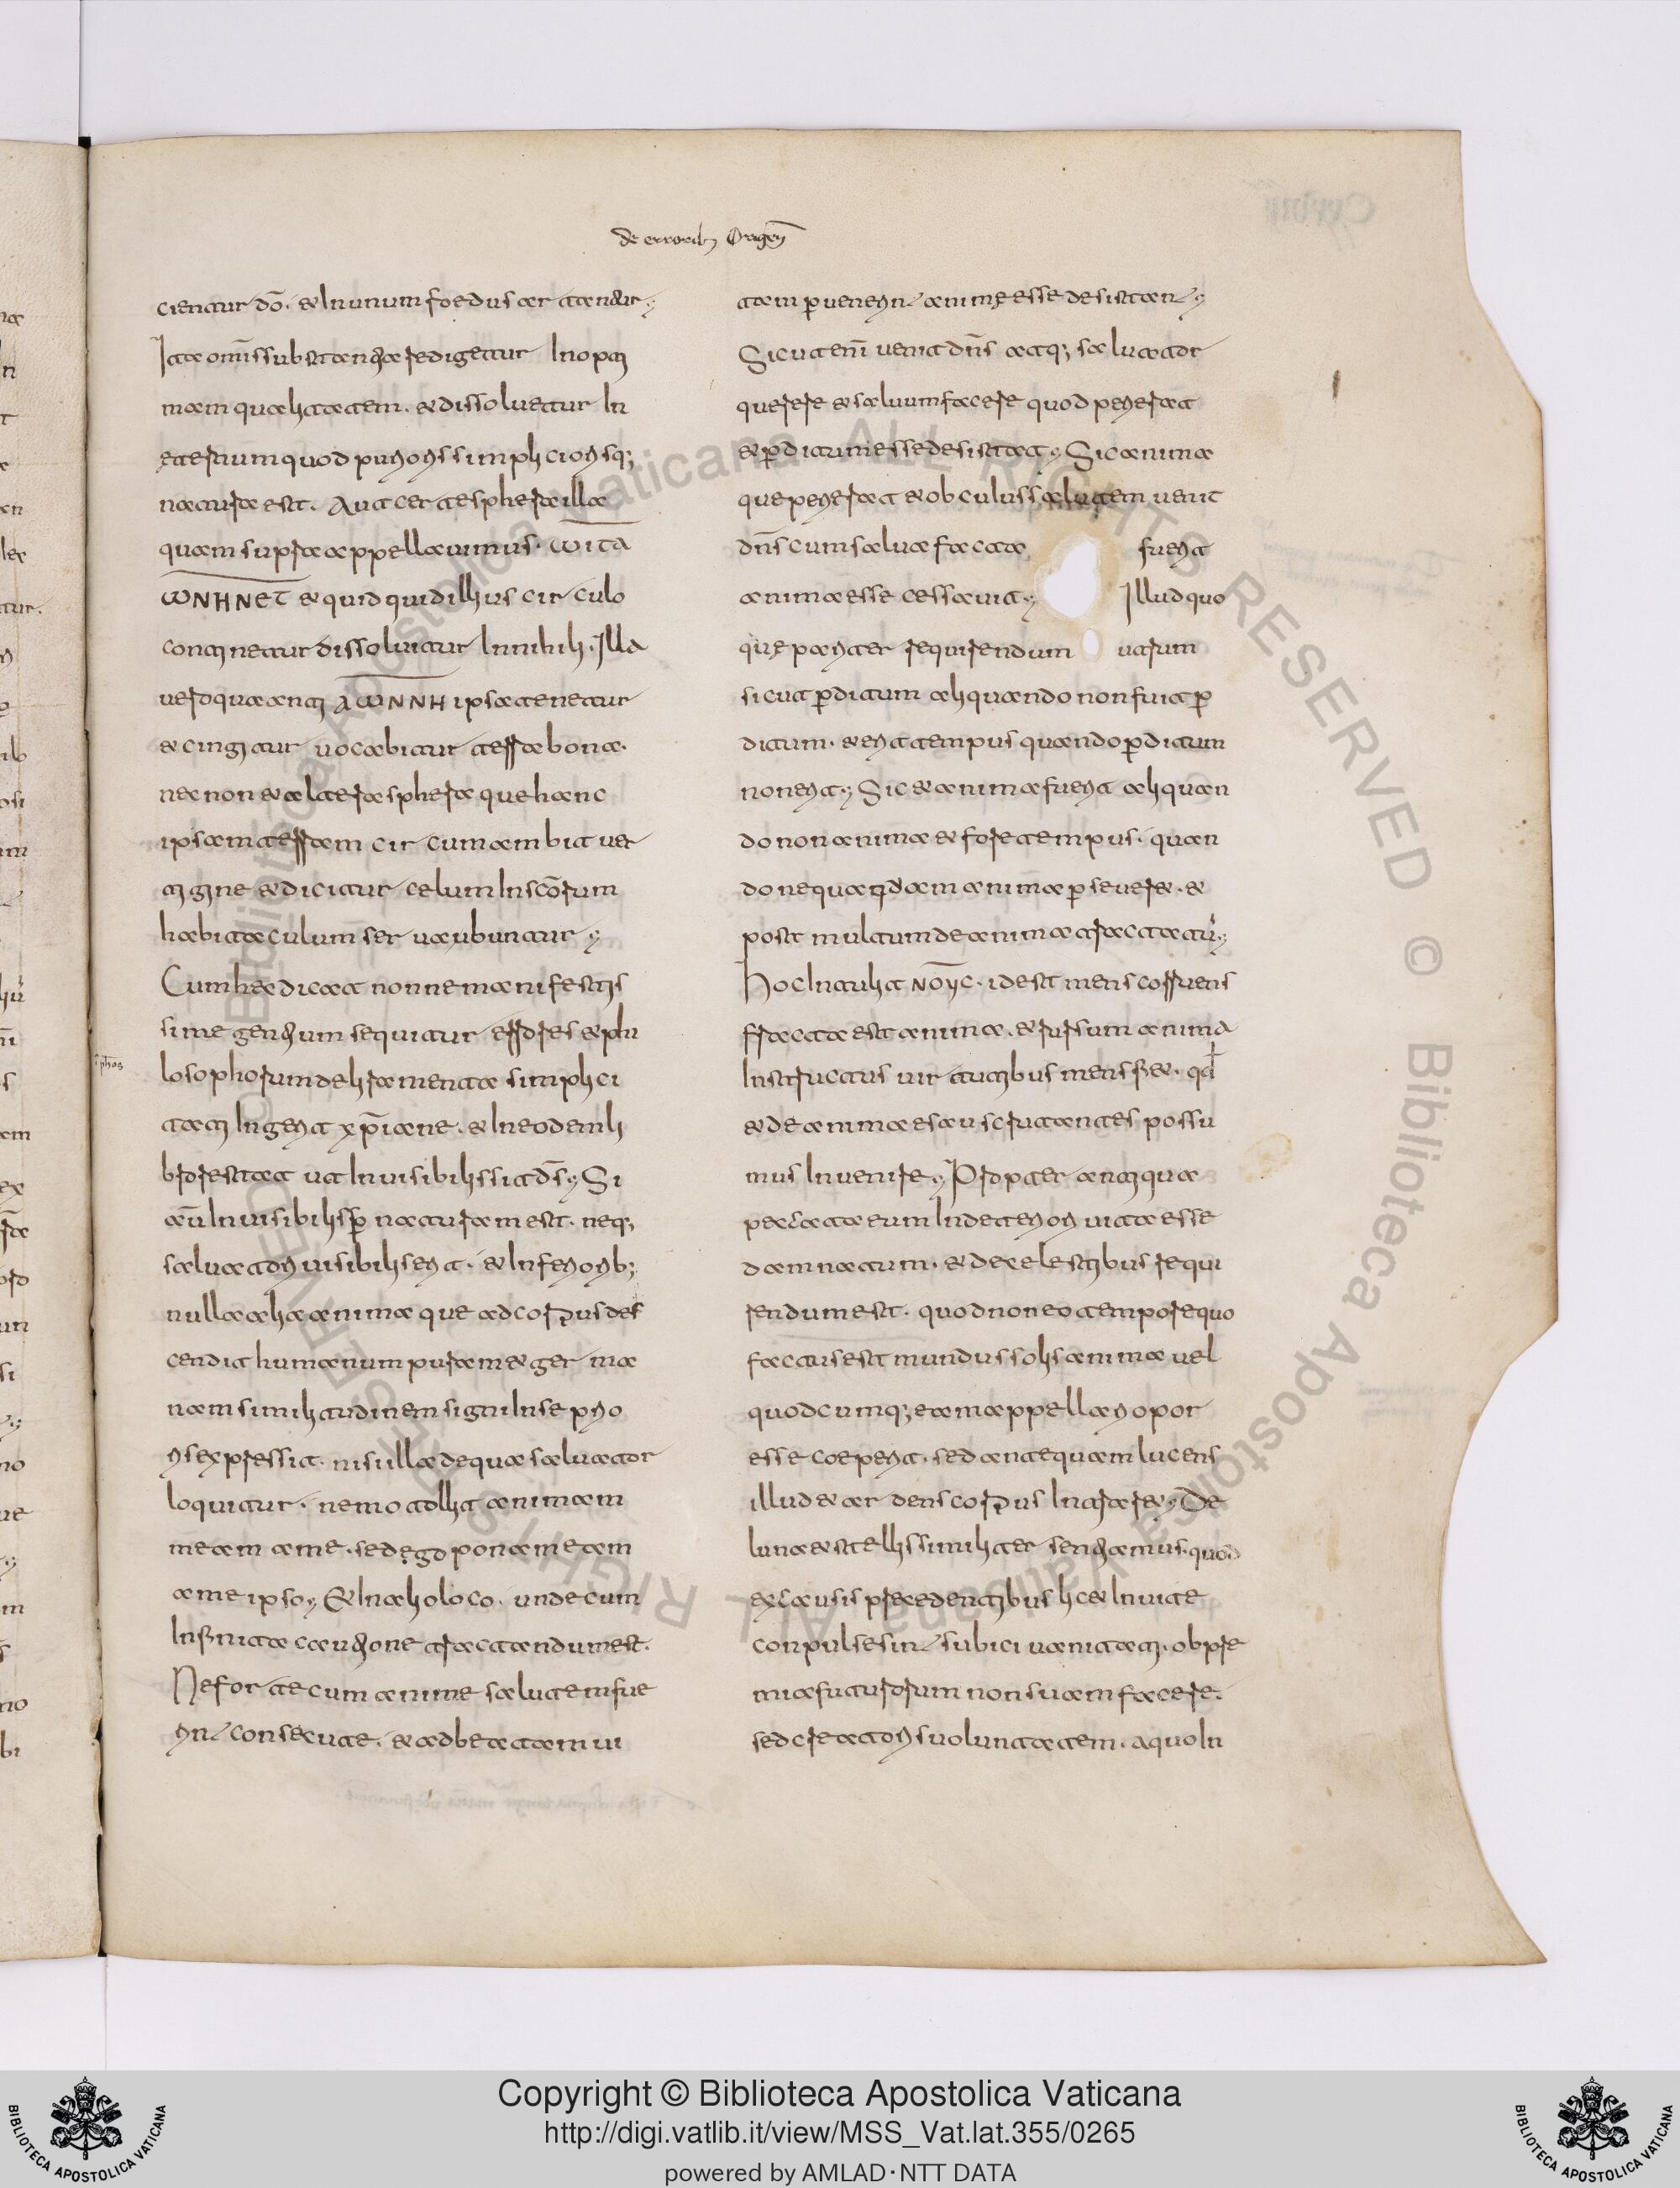 de erroribus Origenis
cientur dō. et In unum foedus artentur;
Ita omīs substantia redigetur In opti
mam qualitatem. et dissoluetur In
ȩternum quod purioris simpliciorisq;
naturae est. Aut certe sphera illa
quam supra appellauimus. ωιτα
ωΝΗΝΕΤ et quid quid illius circulo
continetur dissoluitur In nihili. Illa
uero qua anti ΑωΝΝΗ ipsa tenetur
et cingitur uocabitur terra bona.
nec non et altera sphera que hanc
ipsam terram circumambit uer
tigine et dicitur celum In scōrum
habitaculum seruabuntur;
Cum hec dicat nonne manifestis
sime gentium sequitur errores et phi
losophorum deliramenta simplici
tati Ingerit xp̄iane. et In eodem li
bro restat ut Inuisibilis sit dī̄s; Si
aū Inuisibilis per naturam est. neq;
saluatori uisibilis erit. et Inferiorib;
nulla alia anima que ad corpus des
cendit humanum puram et germa
nam similitudinem signi In se prio
ris expressit. nisi illa de qua saluator
loquitur. nemo tollit animam
meam a me. sed ego pono eam
a me ipso; Et In alio loco. unde cum
Infinita cautione tractandum est.
Ne forte cum anime salutem fue
rint consecute. et ad beatam ui
tam peruenerint anime esse desistant;
Sicut enī uenit dn̄s atq; saluator
querere et saluum facere quod perierat
et perditum esse desistat; Sic anima
que perierat et ob cuius salutem uenit
dn̄s cum salua facta fuerit
anima esse cessauit; Illud quo
quȩ pariter requirendum utrum
sicut perditum aliquando non fuit per
ditum. et erit tempus quando perditum
non erit; Sic et anima fuerit aliquan
do non anima et fore tempus. quan
do nequaquam anima perseueret. et
post multum de anima tractatū;
Hoc Intulit ΝΟΥC. id est mens corruens
facta est anima. et rursum anima
Instructa uirtutibus mens fiet. qd
et de anima esau scrutantes possu
mus Inuenire; Propter antiqua
peccata eum In deteriori uita esse
damnatum. et de celestibus requi
rendum est. quod non eo tempore quo
factus est mundus solis anima uel
quodcumq; eam appellari opor
esse coeperit. sed antequam lucens
illud et ardens corpus Intraret; De
luna et stellis similiter sentiamus. quod
ex causis precedentibus licet Inuite
conpulse sint subici uanitati. ob pre
mia futurorum non suam facere.
sed creatoris uoluntatem. a quo In
Copyright © Biblioteca Apostolica Vaticana
http://digi.vatlib.it/view/MSS_Vat.lat.355/0265
powered by AMLAD·NTT DATA